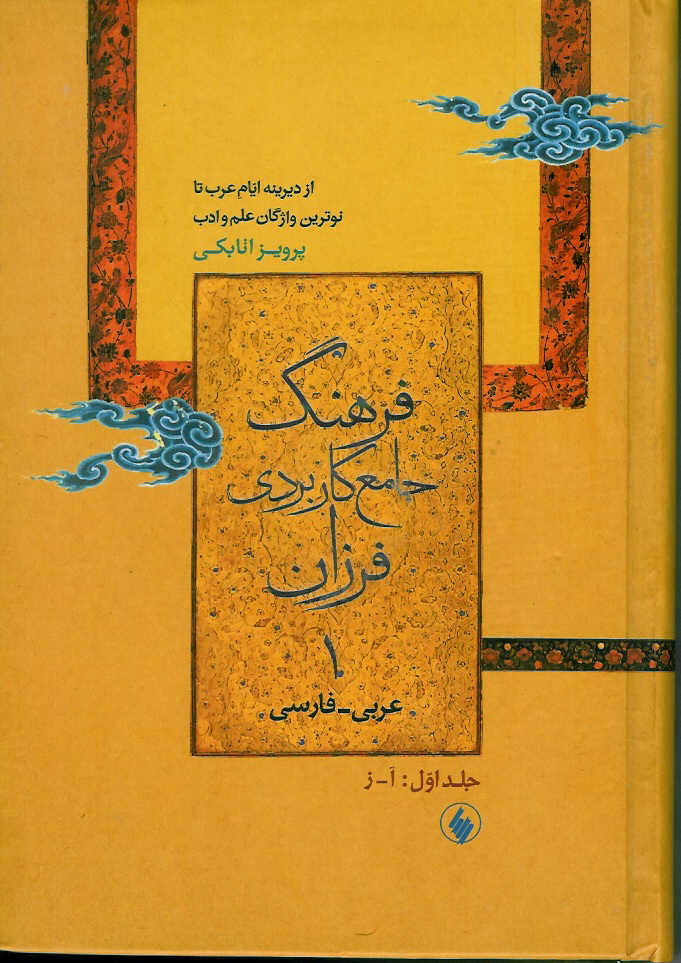 از دیرینه ایّام عرب تا
نوترین واژگان علم و ادب
پرویز اتابکی
فرهنگ
جامع کاربردی
فرزان
۱
عربی-فارسی
جلد اوّل: آ-ز